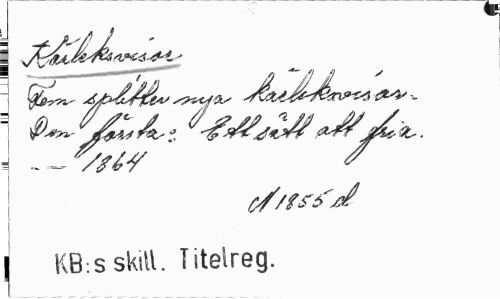 Kärleksvisor
Fem splitter nya kärleksvisor.
Den första: Ett sätt att fria.
-- 1864
N 1855 d
KB:s skill. Titelreg.